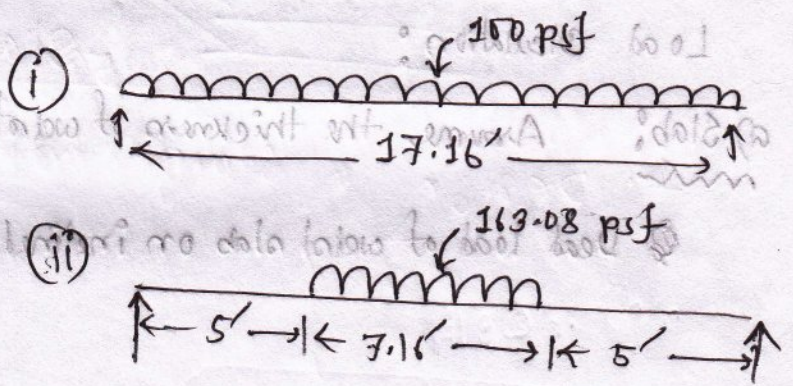 i
100 psf
17.16'
ii
163.08 psf
5' 7.16' 5'